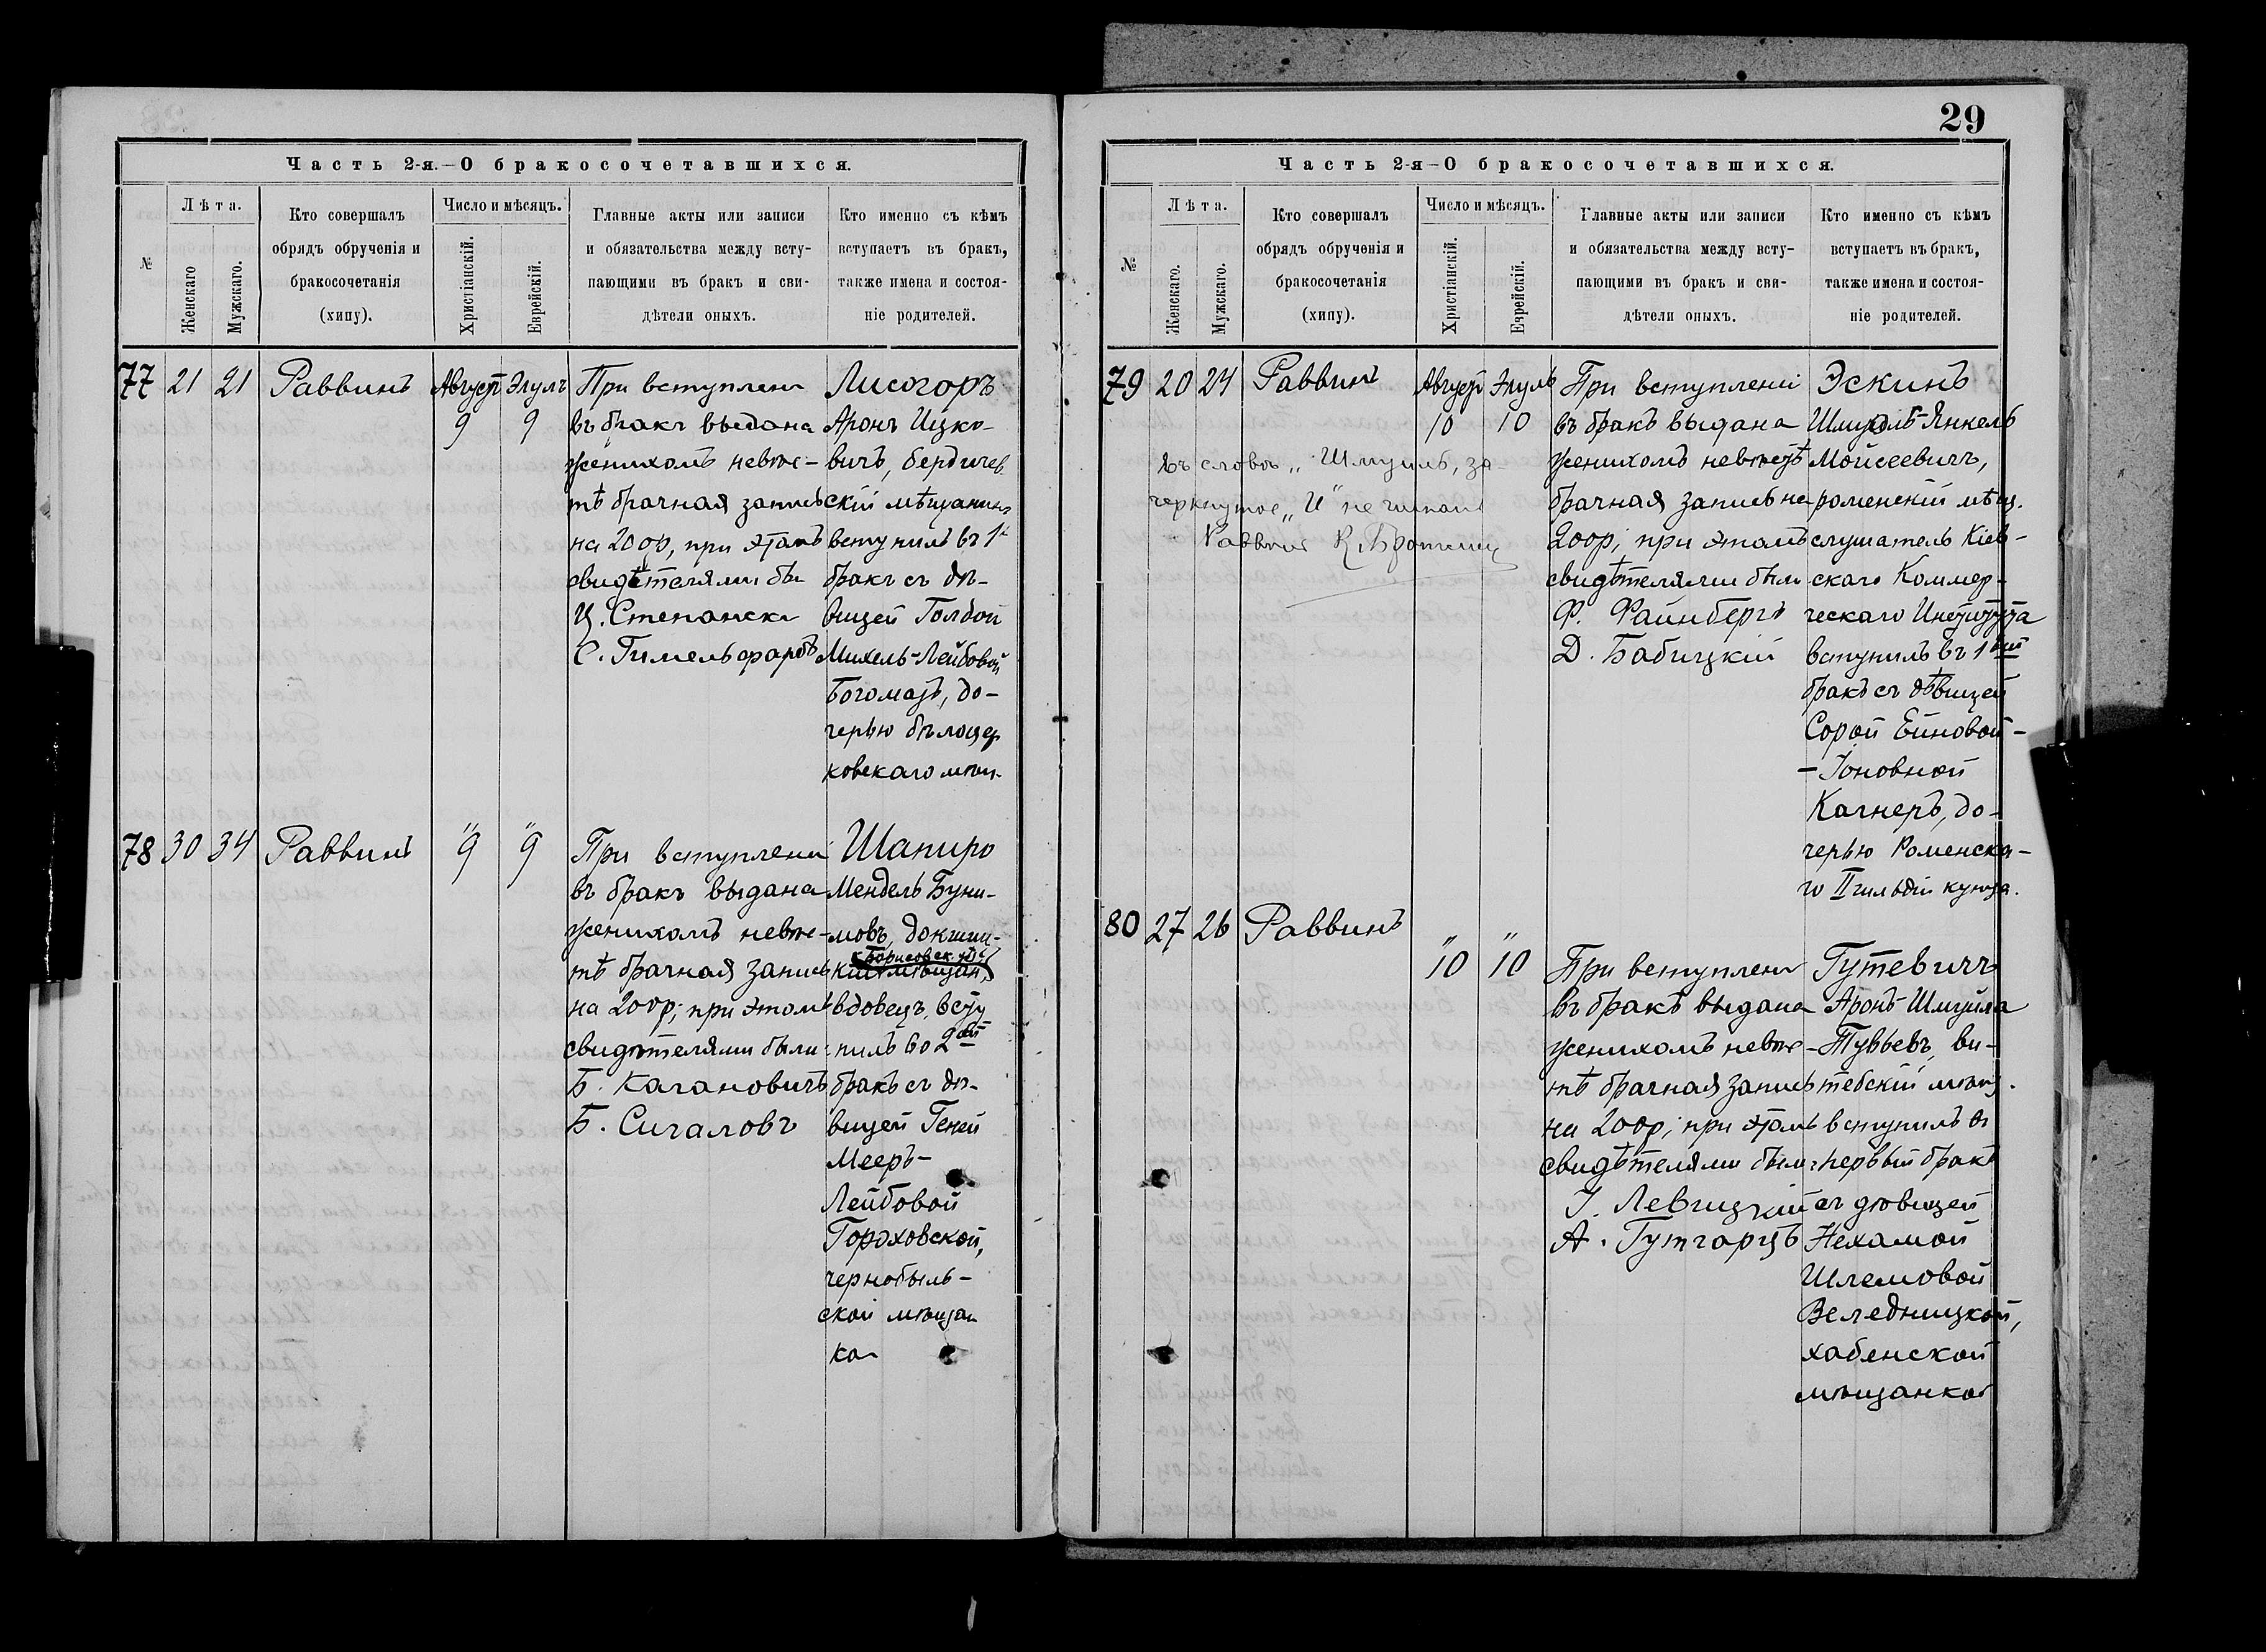 Часть 2-я.—О бракосочетавшихся.
№
Лѣта.
Женскаго
Мужскаго.
Кто совершалъ
обрядъ обрученія и
бракосочетанія
(хипу).
Число и мѣсяцъ.
Христіанскій.
Еврейскій.
Главные акты или записи
и обязательства между всту-
пающими въ бракъ и сви-
дѣтели оныхъ.
Кто именно съ кѣмъ
вступаетъ въ бракъ,
также имена и состоя-
ніе родителей.
77 21 21 Раввинъ
Август Элулъ
9 9
При вступлени
въ бракъ выдана
женихомъ невѣс-
тѣ брачная запись
на 200р, при этомъ
свидѣтелями бы
Ц. Степански
С. Гимельфарбъ
Лисогоръ
Аронъ Ицко-
вичъ, бердичев
скій мѣщанинъ
вступилъ въ 1й
бракъ съ дѣ-
вицей Голдой
Михель-Лейбовой
Богомазъ, до-
черью бѣлоцер
ковскаго мѣщ.
78 30 34 Раввинъ
" "
9 9
При вступлени
въ бракъ выдана
женихомъ невѣс-
тѣ брачная запись
на 200р; при этомъ
свидѣтелями были
Б. Кагановичъ
Б. Сигаловъ
Шапиро
Мендель Буни-
мовъ, докшиц-
(Борисовск. уѣ.)
кій мѣщан,
вдовецъ, всту
пилъ во 2ой
бракъ съ дѣ-
вицей Геней
Мееръ-
Лейбовой
Гороховской,
чернобыль-
ской мѣщан
кой
29
Часть 2-я—О бракосочетавшихся.
№
Лѣта.
Женскаго.
Мужскаго.
Кто совершалъ
обрядъ обрученія и
бракосочетанія
(хипу).
Число и мѣсяцъ.
Христіанскій.
Еврейскій.
Главные акты или записи
и обязательства между всту-
пающими въ бракъ и сви-
дѣтели оныхъ.
Кто именно съ кѣмъ
вступаетъ въ бракъ,
также имена и состоя-
ніе родителей.
79 20 24 Раввинъ
Август Элулъ
10 10
Въ словѣ „Шмуиль, за-
черкнутое „И" не читать
Раввинъ
При вступленіи
въ бракъ выдана
женихомъ невѣстѣ
брачная запись на
200р; при этомъ
свидѣтелями были
Ф. Файнбергъ
Д. Бабицкій
Эскинъ
Шмуель-Янкель
Мойсеевичъ,
роменскій мѣщ.
слушатель Кіев-
скаго Коммер-
ческаго Института
вступилъ въ 1ый
бракъ съ дѣвицей
Сорой Ейновой-
-Іоновной
Кагнеръ, до-
черью Роменска-
го II гильдіи купца.
80 27 26 Раввинъ
" "
10 10
При вступлени
въ бракъ выдана
женихомъ невѣс-
тѣ брачная запись
на 200р; при этомъ
свидѣтелями были
І. Левицкій
А. Гутгарцъ
Гутевичъ
Аронъ-Шмуйла
Тувьевъ, ви-
тебскій мѣщ.
вступилъ въ
первый бракъ
съ дѣвицей
Нехамой
Шлемовой
Веледницкой,
хабенской
мѣщанкой